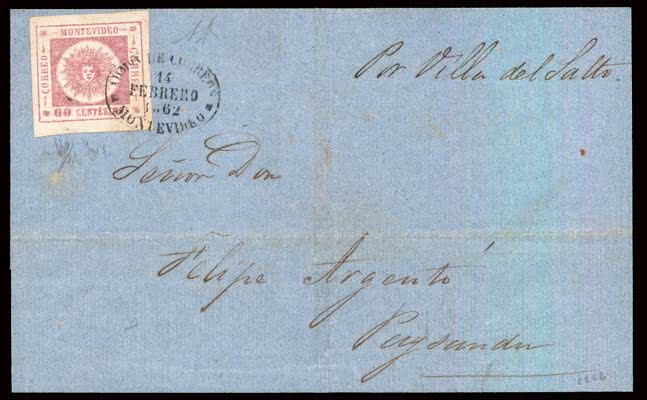 MONTEVIDEO
CORREO
CORREO
60 CENTES
ADMON DE CORREOS
14
FEBRERO
1862
MONTEVIDEO
Por Villa del Salto.
Señor Don
Felipe Argentó
Paysandu